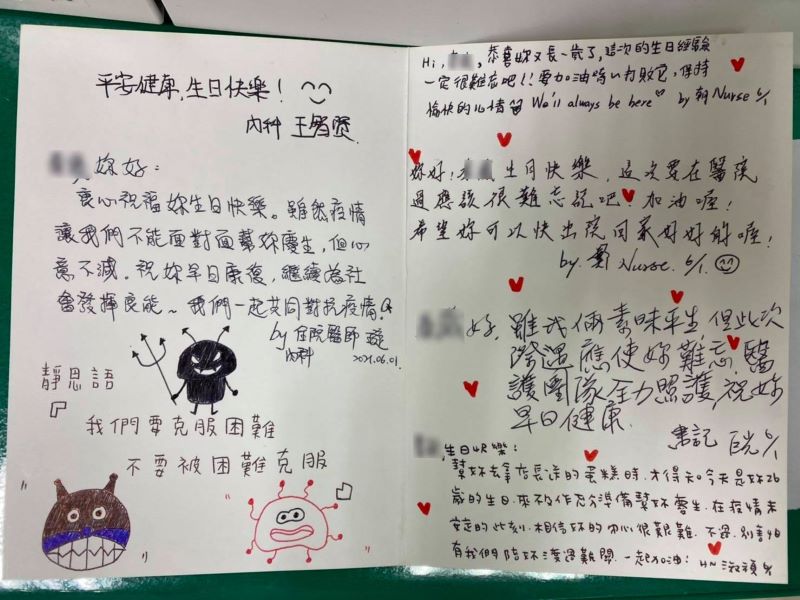 平安健康,生日快樂!
內科 王
妳好:
衷心祝福妳生日快樂。雖然疫情
讓我們不能面對面幫妳慶生,但心
意不減。祝妳早日康復,繼續為社
會發揮良能~我們一起共同對抗疫情!
by 住院醫師
內科 2021.06.01.
靜思語
「我們要克服困難
不要被困難克服」
Hi, 恭喜妳又長一歲了,這次的生日經驗
一定很難忘吧!!要加油喔!打敗它,保持
愉快的心情 We'll always be here♡ by 朝 Nurse 6/1
妳好! 生日快樂,這次要在醫院
過應該很難忘記吧 加油喔!
希望妳可以快出院回家好好的喔!
by. Nurse. 6/1.
好,雖我倆素昧平生,但此次
際遇應使妳難忘,醫
護團隊全力照護,祝妳
早日健康.
書記 6/1
,生日快樂:
幫妳去拿店長送的蛋糕時,才得知今天是妳26
歲的生日,來不及充分準備幫妳慶生,在疫情未
安定的此刻,相信妳的內心很艱難,不過,別害怕
有我們陪妳渡過難關,一起加油! HN 淑禎 6/1